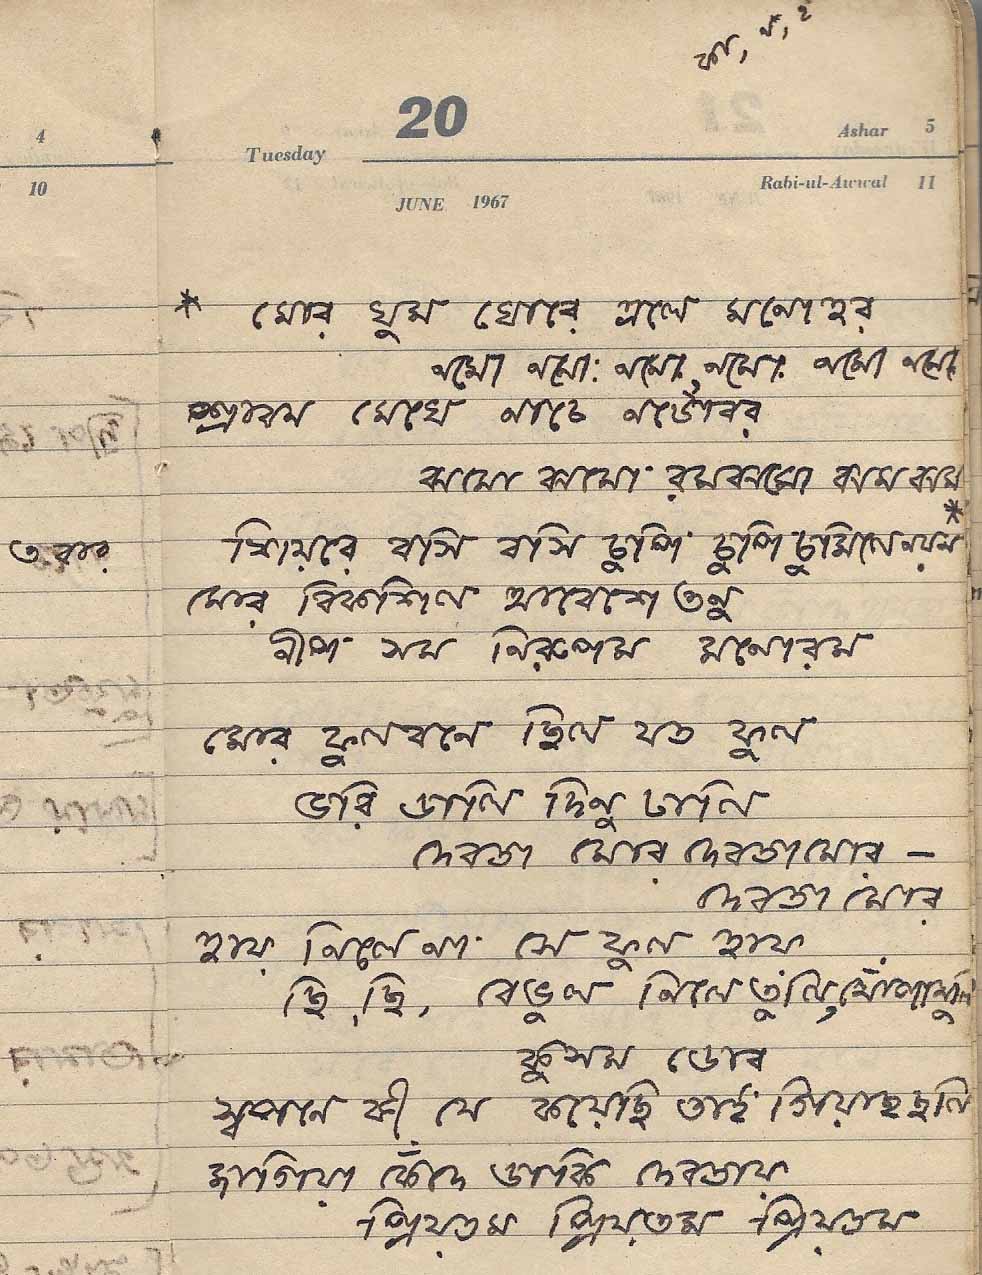 ফা, ন, ২
20
4
Ashar 5
Tuesday
10
Rabi-ul-Awwal 11
JUNE 1967
* মোর ঘুম ঘোরে এলে মনোহর
নমো নমো: নমো, নমো: নমো নমো
শ্রাবন মেঘে নাচে নটোবর
ঝামো ঝামো রমঝমো ঝাম ঝাম
*
শিয়রে বসি বসি চুপি চুপি চুমিলে নয়ন
মোর বিকশিল আবেশে তনু
নীপ সম নিরুপম মনোরম
মোর ফুলবনে ছিল যত ফুল
ভরি ডালি দিনু ঢালি
দেবতা মোর দেবতা মোর —
দেবতা মোর
হায় নিলে না সে ফুল হায়
ছি, ছি, বেভুল নিলে তুলি, খোঁপা খুলি
কুসম ডোর
স্বপনে কী যে কয়েছি তাই গিয়াছ চলি
জাগিয়া কেঁদে ডাকি দেবতায়
প্রিয়তম প্রিয়তম প্রিয়তম